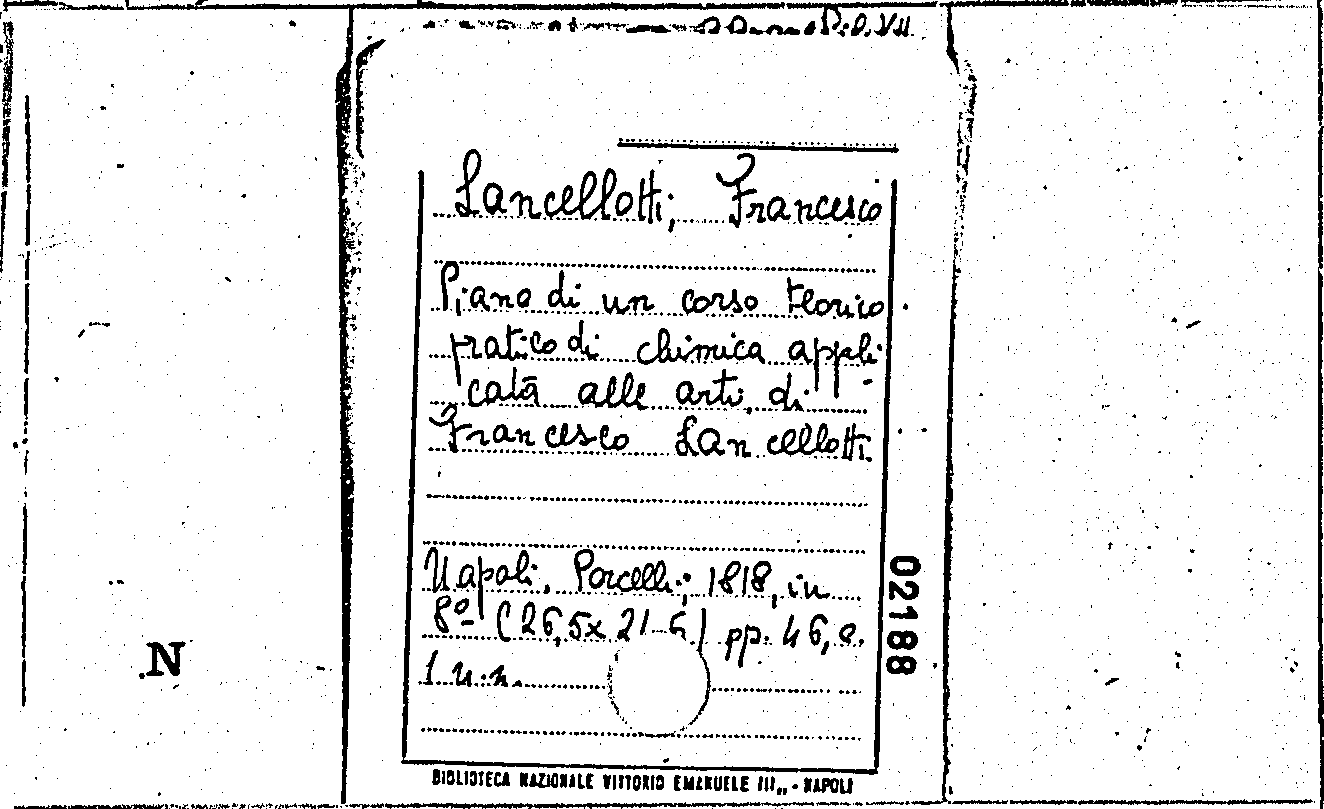 Lancellotti, Francesco
Piano di un corso teorico
pratico di chimica appli-
cata alle arti di
Francesco Lancellotti.
Napoli, Porcelli, 1818, in
8º (26,5x 21 ) pp. 46, c.
1 n.n.
02188
N
BIBLIOTECA NAZIONALE VITTORIO EMANUELE III„ - NAPOLI